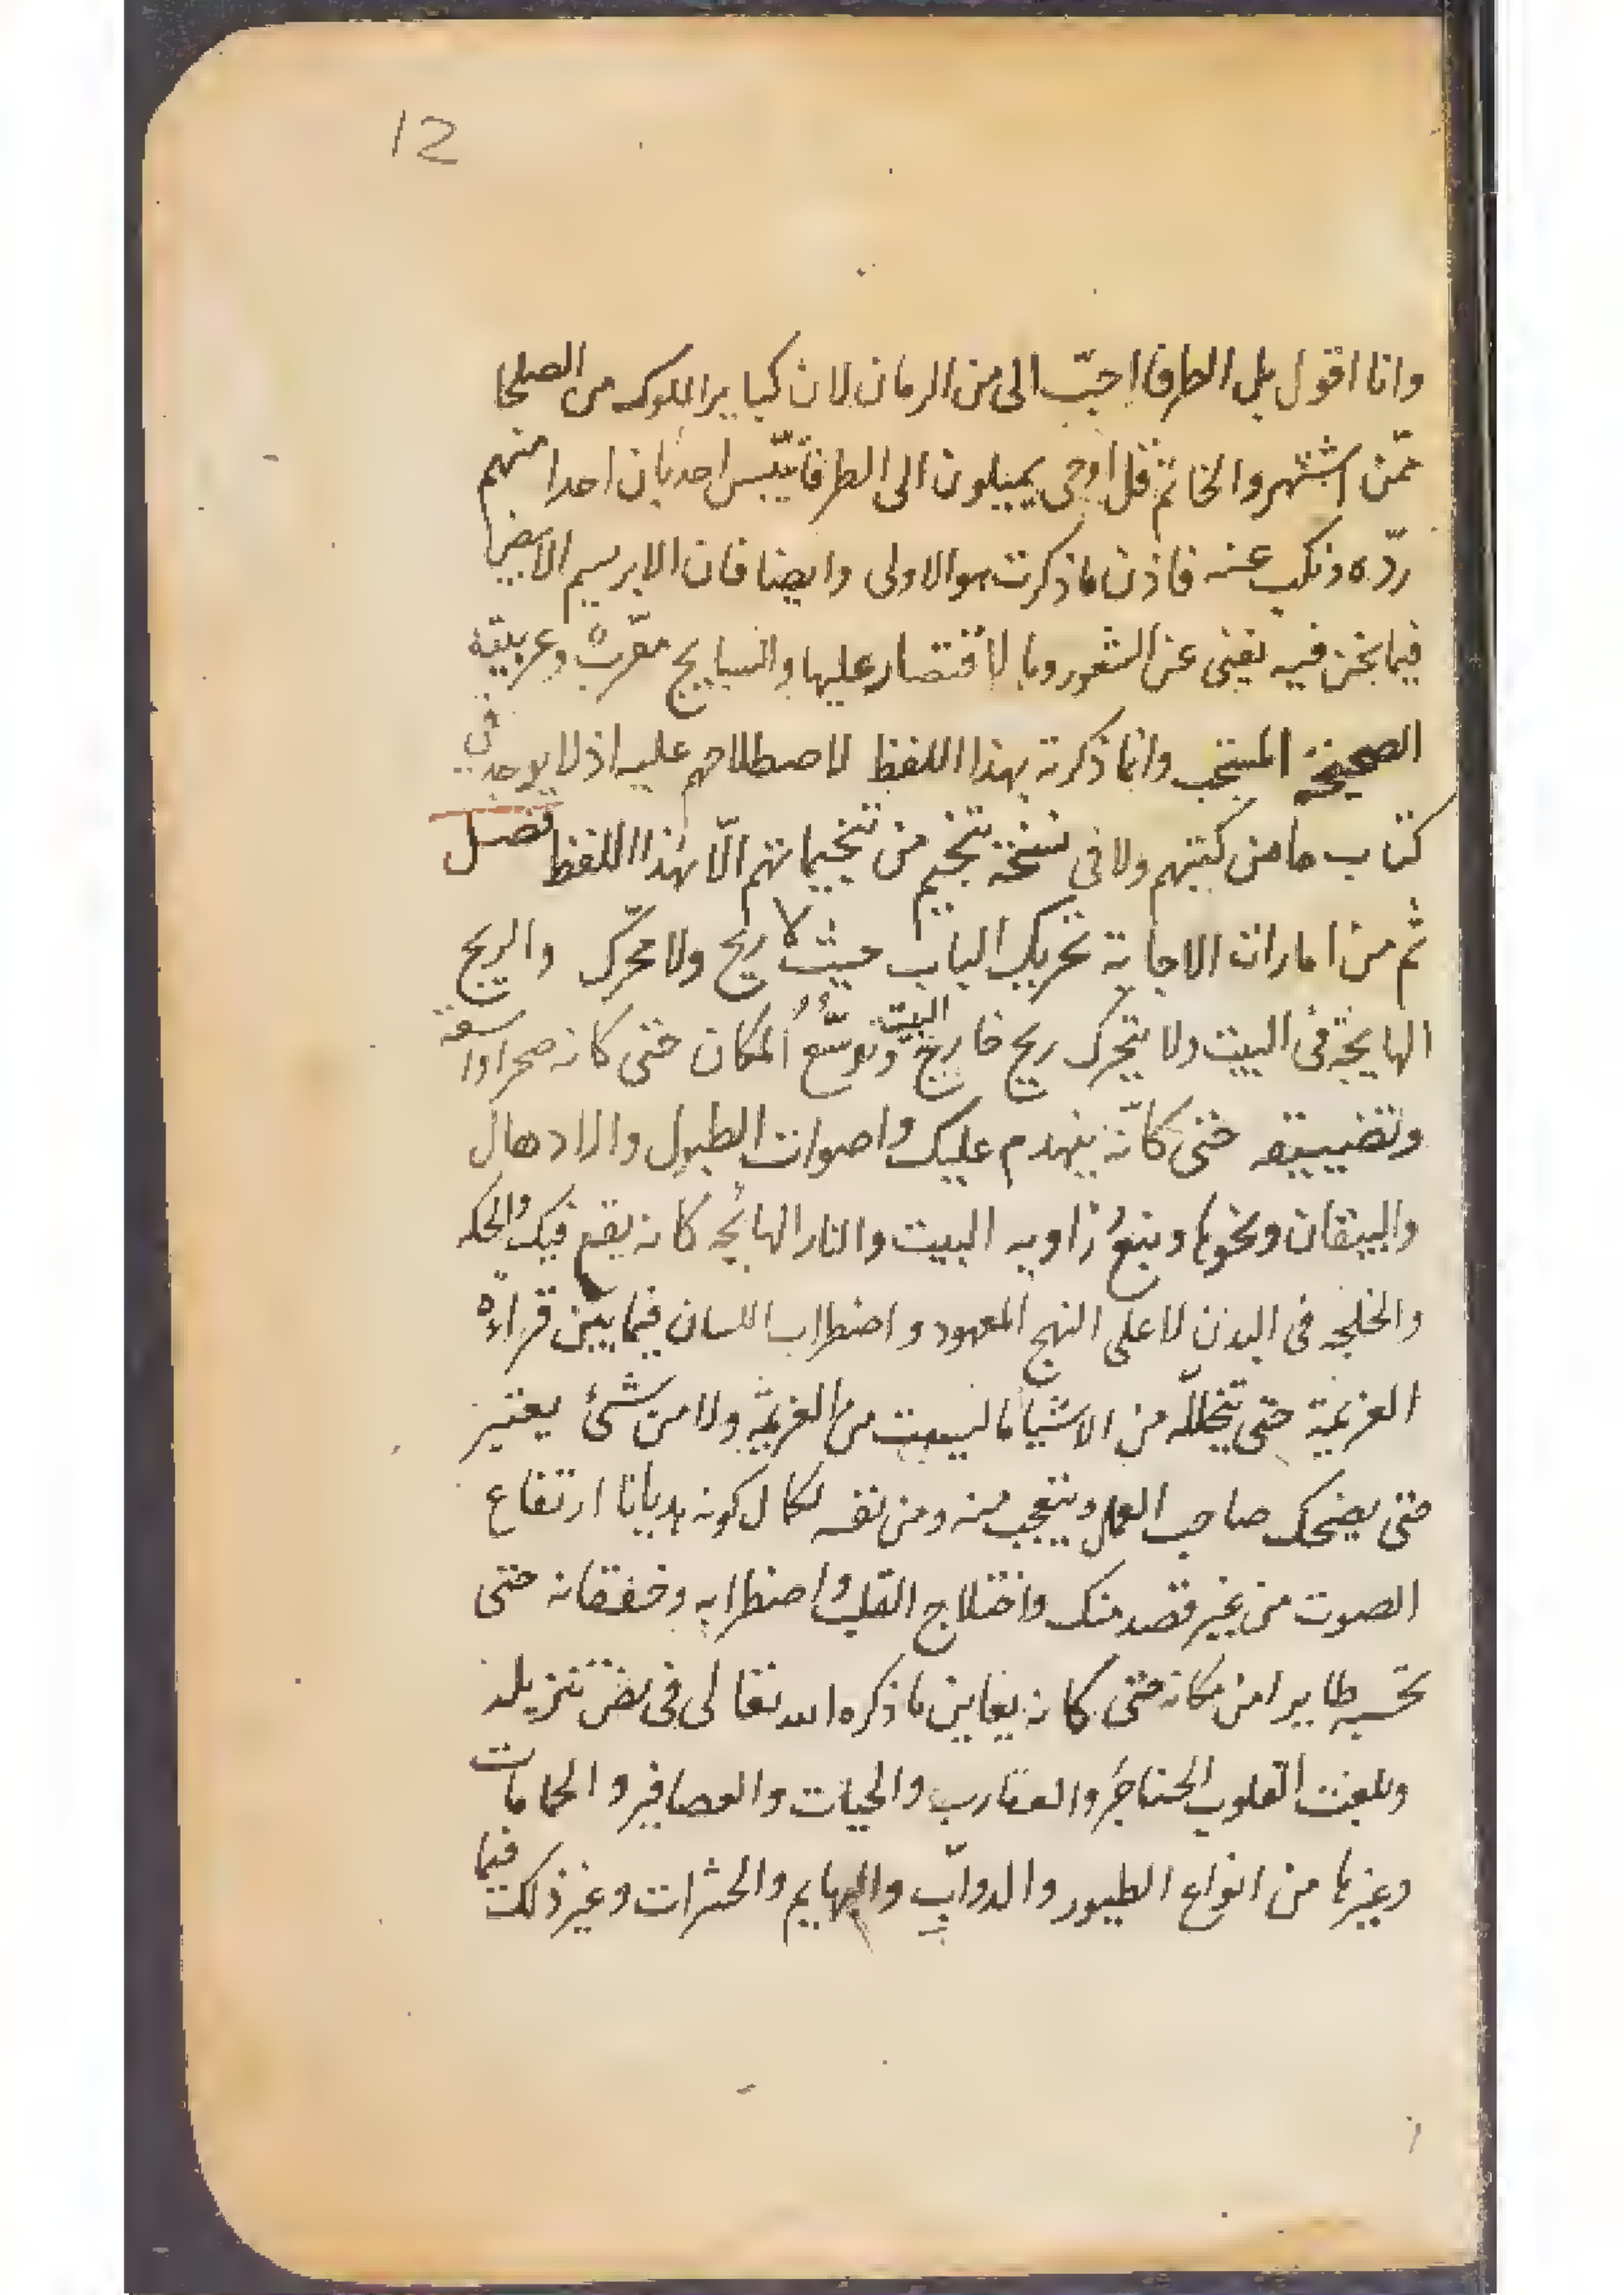 12
وانا اقول بل الطرفا احبّ الى من الرمان لان كبايرا الملوك من الصلحا
ممّن اشتهر والخاتم قل اوحى يميلون الى الطرفا يبّس احد بان احدا منهم
ردّه ونكب عنه فاذن ما ذكرت هو الاولى وايضا فان الابريسم الابيض
فيما نحن فيه يغنى عن الشعور وبالاقتصار عليها والنسايج معرّبة وعربيته
الصحيحة المنتجب وانما ذكرته بهذا اللفظ لاصطلاحهم عليه اذ لا يوجد فى
كتاب ما من كتبهم ولا فى نسخة تنجيم من تنجيماتهم الّا بهذا اللفظ فصل
ثم من امارات الاجابة تحريك الباب حيث لا ريح ولا محرّك والريح
الهايجة فى البيت ولا يتحرك ريح خارج البيت وتوسّع المكان حتى كانه صحرا واسعة
وتضييقه حتى كانّه ينهدم عليك واصوات الطبول والاادهال
والبيقان ونحوها وينبع زاويه البيت والنار الهايجه كانه يقع فيك والحكه
والخلجه فى البدن لا على النهج المعهود واضطراب اللسان فيما بين قراءة
العزيمة حتى تخللّه من الاشيا ما ليست من العزيمة ولا من شئ يعتبر
حتى يضحك صاحب العمل ويتعجب منه ومن نفسه لكمال كونه هديانا ارتفاع
الصوت من غير قصد منك واختلاج القلب واضطرابه وخفقانه حتى
تحسبه طايرا من مكانه حتى كانه يعاين ما ذكره الله تعالى فى نص تنزيله
وبلغت القلوب الحناجر والعقارب والحيات والعصافير والحمامات
وغيرها من انواع الطيور والدوابّ والبهايم والحشرات وغير ذلك فيما